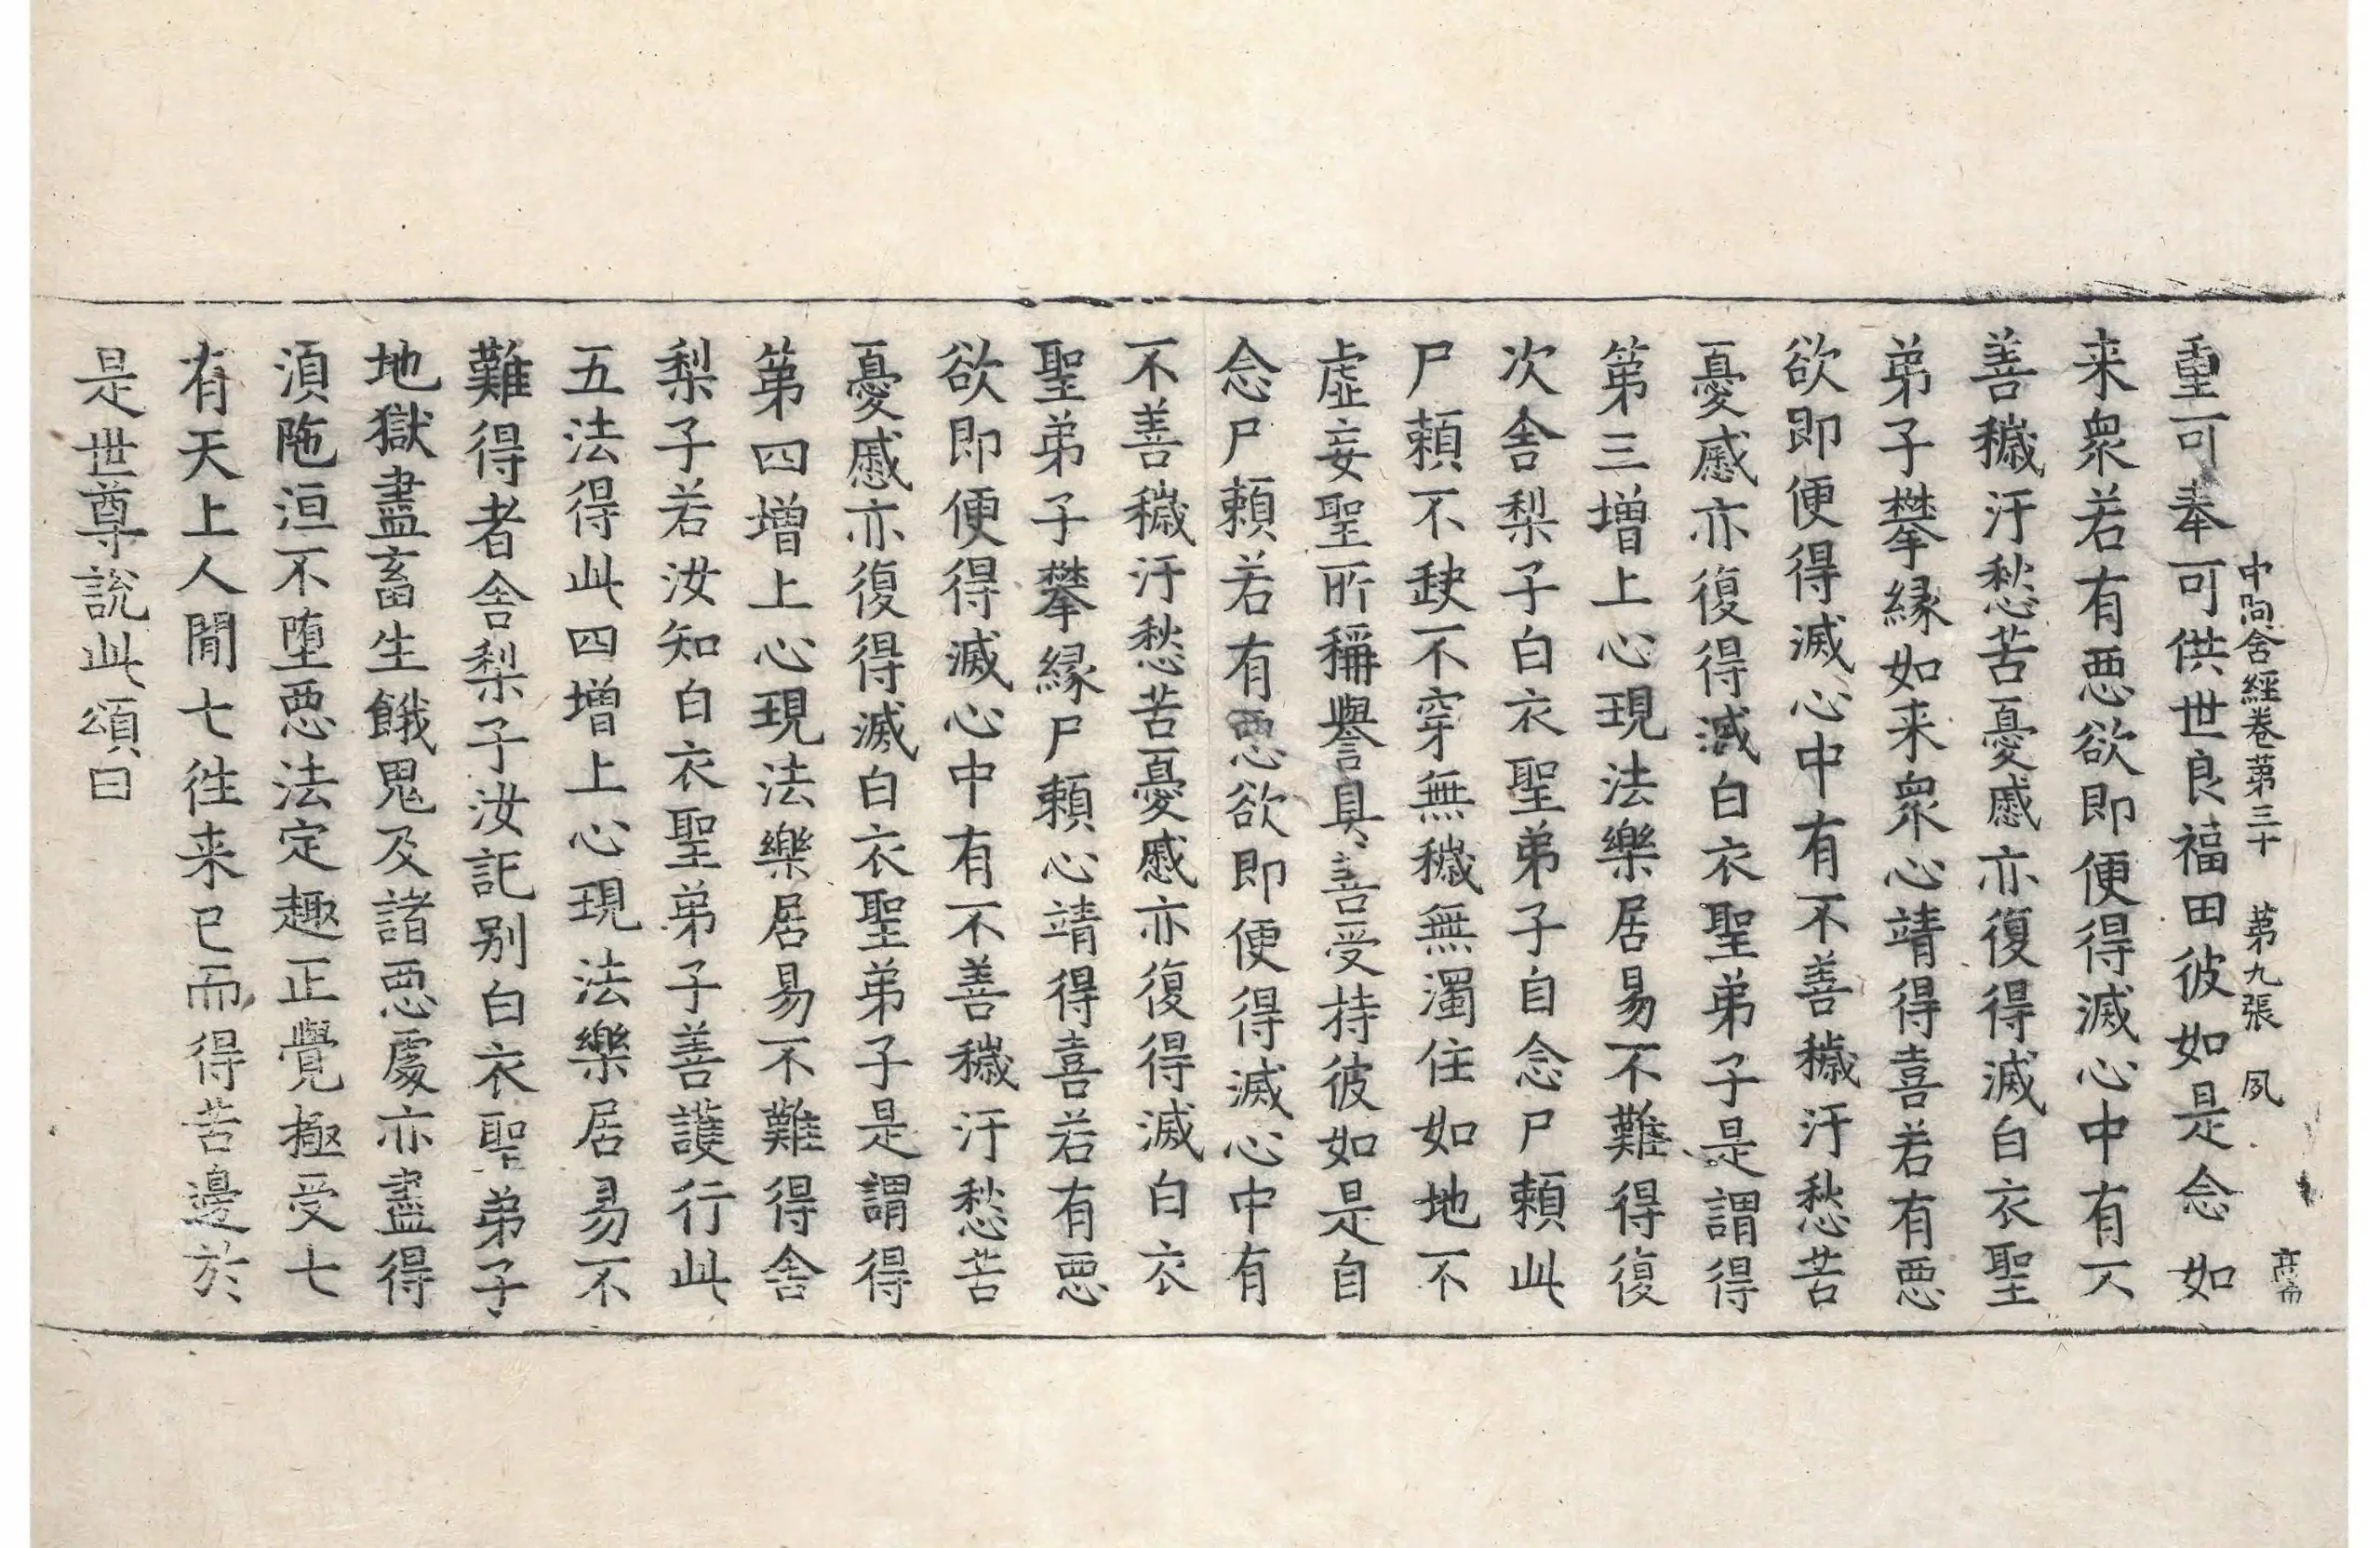 中阿含經卷第三十　第九張　夙
重可奉可供世良福田彼如是念如
来衆若有惡欲即便得滅心中有不
善穢汙愁苦憂慼亦復得滅白衣聖
弟子攀緣如来衆心靖得喜若有惡
欲即便得滅心中有不善穢汙愁苦
憂慼亦復得滅白衣聖弟子是謂得
第三增上心現法樂居易不難得復
次舍梨子白衣聖弟子自念尸賴此
尸賴不缺不穿無穢無濁住如地不
虛妄聖所稱譽具善受持彼如是自
念尸賴若有惡欲即便得滅心中有
不善穢汙愁苦憂慼亦復得滅白衣
聖弟子攀緣尸賴心靖得喜若有惡
欲即便得滅心中有不善穢汙愁苦
憂慼亦復得滅白衣聖弟子是謂得
第四增上心現法樂居易不難得舍
梨子若汝知白衣聖弟子善護行此
五法得此四增上心現法樂居易不
難得者舍梨子汝記别白衣聖弟子
地獄盡畜生餓鬼及諸惡處亦盡得
須陁洹不墮惡法定趣正覺極受七
有天上人間七往来已而得苦邊於
是世尊說此頌曰